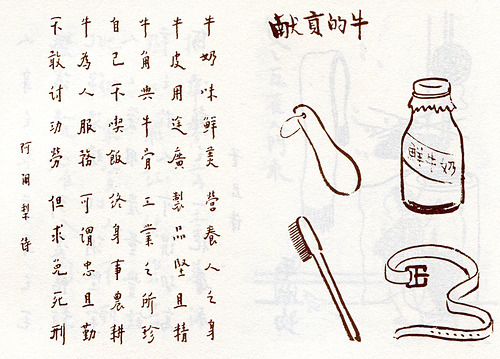 献貢的牛
鮮牛奶
牛奶味鮮美 營養人之身
牛皮用途廣 製品堅且精
牛角與牛骨 工業之所珍
自己不喫飯 終身事農耕
牛為人服務 可謂忠且勤
不敢讨功勞 但求免死刑
阿闍梨诗